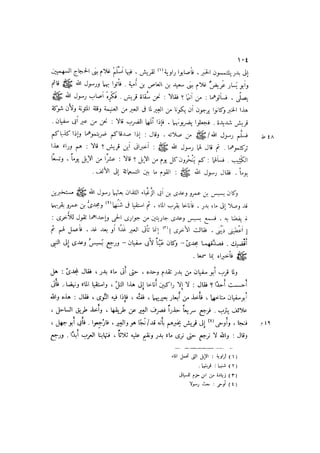 ١٠٤
إلى بدر يلتمسون الخبر ، فأصابوا راوية (١) لقريش ، فيها أسلم غلام بنى الحجاج السهميين
وأبو يسار عريض غلام بنى سعيد بن العاص بن أمية . فأتوا بهما ورسول الله ﷺ قائم
يصلى ، فسألوهما : من أنتما ؟ فقالا : نحن سقاة قريش . فكره أصحاب رسول الله ﷺ
هذا الخبر وكانوا يرجون أن يكونا من العير لما فى العير من الغنيمة وقلة المئونة ولأن شوكة
قريش شديدة . فجعلوا يضربونهما ، فإذا آلمها الضرب قالا : نحن من عير أبى سفيان .
فسلم رسول الله / ﷺ من صلاته . وقال : إذا صدقاكم ضربتموهما وإذا كذباكم
تركتموهما . ثم قال لهما رسول الله ﷺ : أخبرانى أين قريش ؟ قالا : هم وراء هذا
الكثيب . فسألهما : كم ينحرون كل يوم من الإبل ؟ قالا : عشرا من الإبل يوماً ، وتسعاً
يوماً . فقال رسول الله ﷺ : القوم ما بين التسعمائة إلى الألف .
٤٨ ظ
وكان بسبس بن عمرو وعدى بن أبى الزغباء اللذان بعثهما رسول الله ﷺ مستخبرين
قد وصلا إلى ماء بدر ، فأناخا بقرب الماء ، ثم استقيا فى شنهما (٢) ومجدى بن عمرو بقربهما
لم يفطنا به ، فسمع بسبس وعدى جاريتين من جوارى الحى وإحداهما تقول للأخرى :
[ أعطينى دينى . فقالت الأخرى (٣) ] إنما تأتى العير غداً أو بعد غد . فأعمل لهم ثم
أقضيك . فصدقهما مجدى - وكان عيناً لأبى سفيان - ورجع بسبس وعدى إلى النبى
ﷺ فأخبراه بما سمعا .
ولما قرب أبو سفيان من بدر تقدم وحده ، حتى أتى ماء بدر ، فقال لمجدى : هل
أحسست أحدًا ؟ فقال : لا إلا راكبين أناخا إلى هذا التل ، واستقيا الماء ونهضا . فأتى
أبو سفيان مناخهما ، فأخذ من أبعار بعيريهما ، ففته ، فإذا فيه النوى ، فقال : هذه والله
علائف يثرب . فرجع سريعاً حذراً فصرف العير عن طريقها ، وأخذ طريق الساحل ،
فنجا ، وأوحى (٤) إلى قريش يخبرهم بأنه قد / نجا هو والعير ، فارجعوا . فأبى أبو جهل ،
٤٩ و
وقال : والله لا نرجع حتى نرى ماء بدر ونقيم عليه ثلاثاً ، فتهابنا العرب أبداً . ورجع
(١) الراوية : الإبل التى تحمل الماء
(٢) شنهما : قربتهما .
(٣) زيادة من ابن حزم للسياق
(٤) أوحى : بعث رسولا